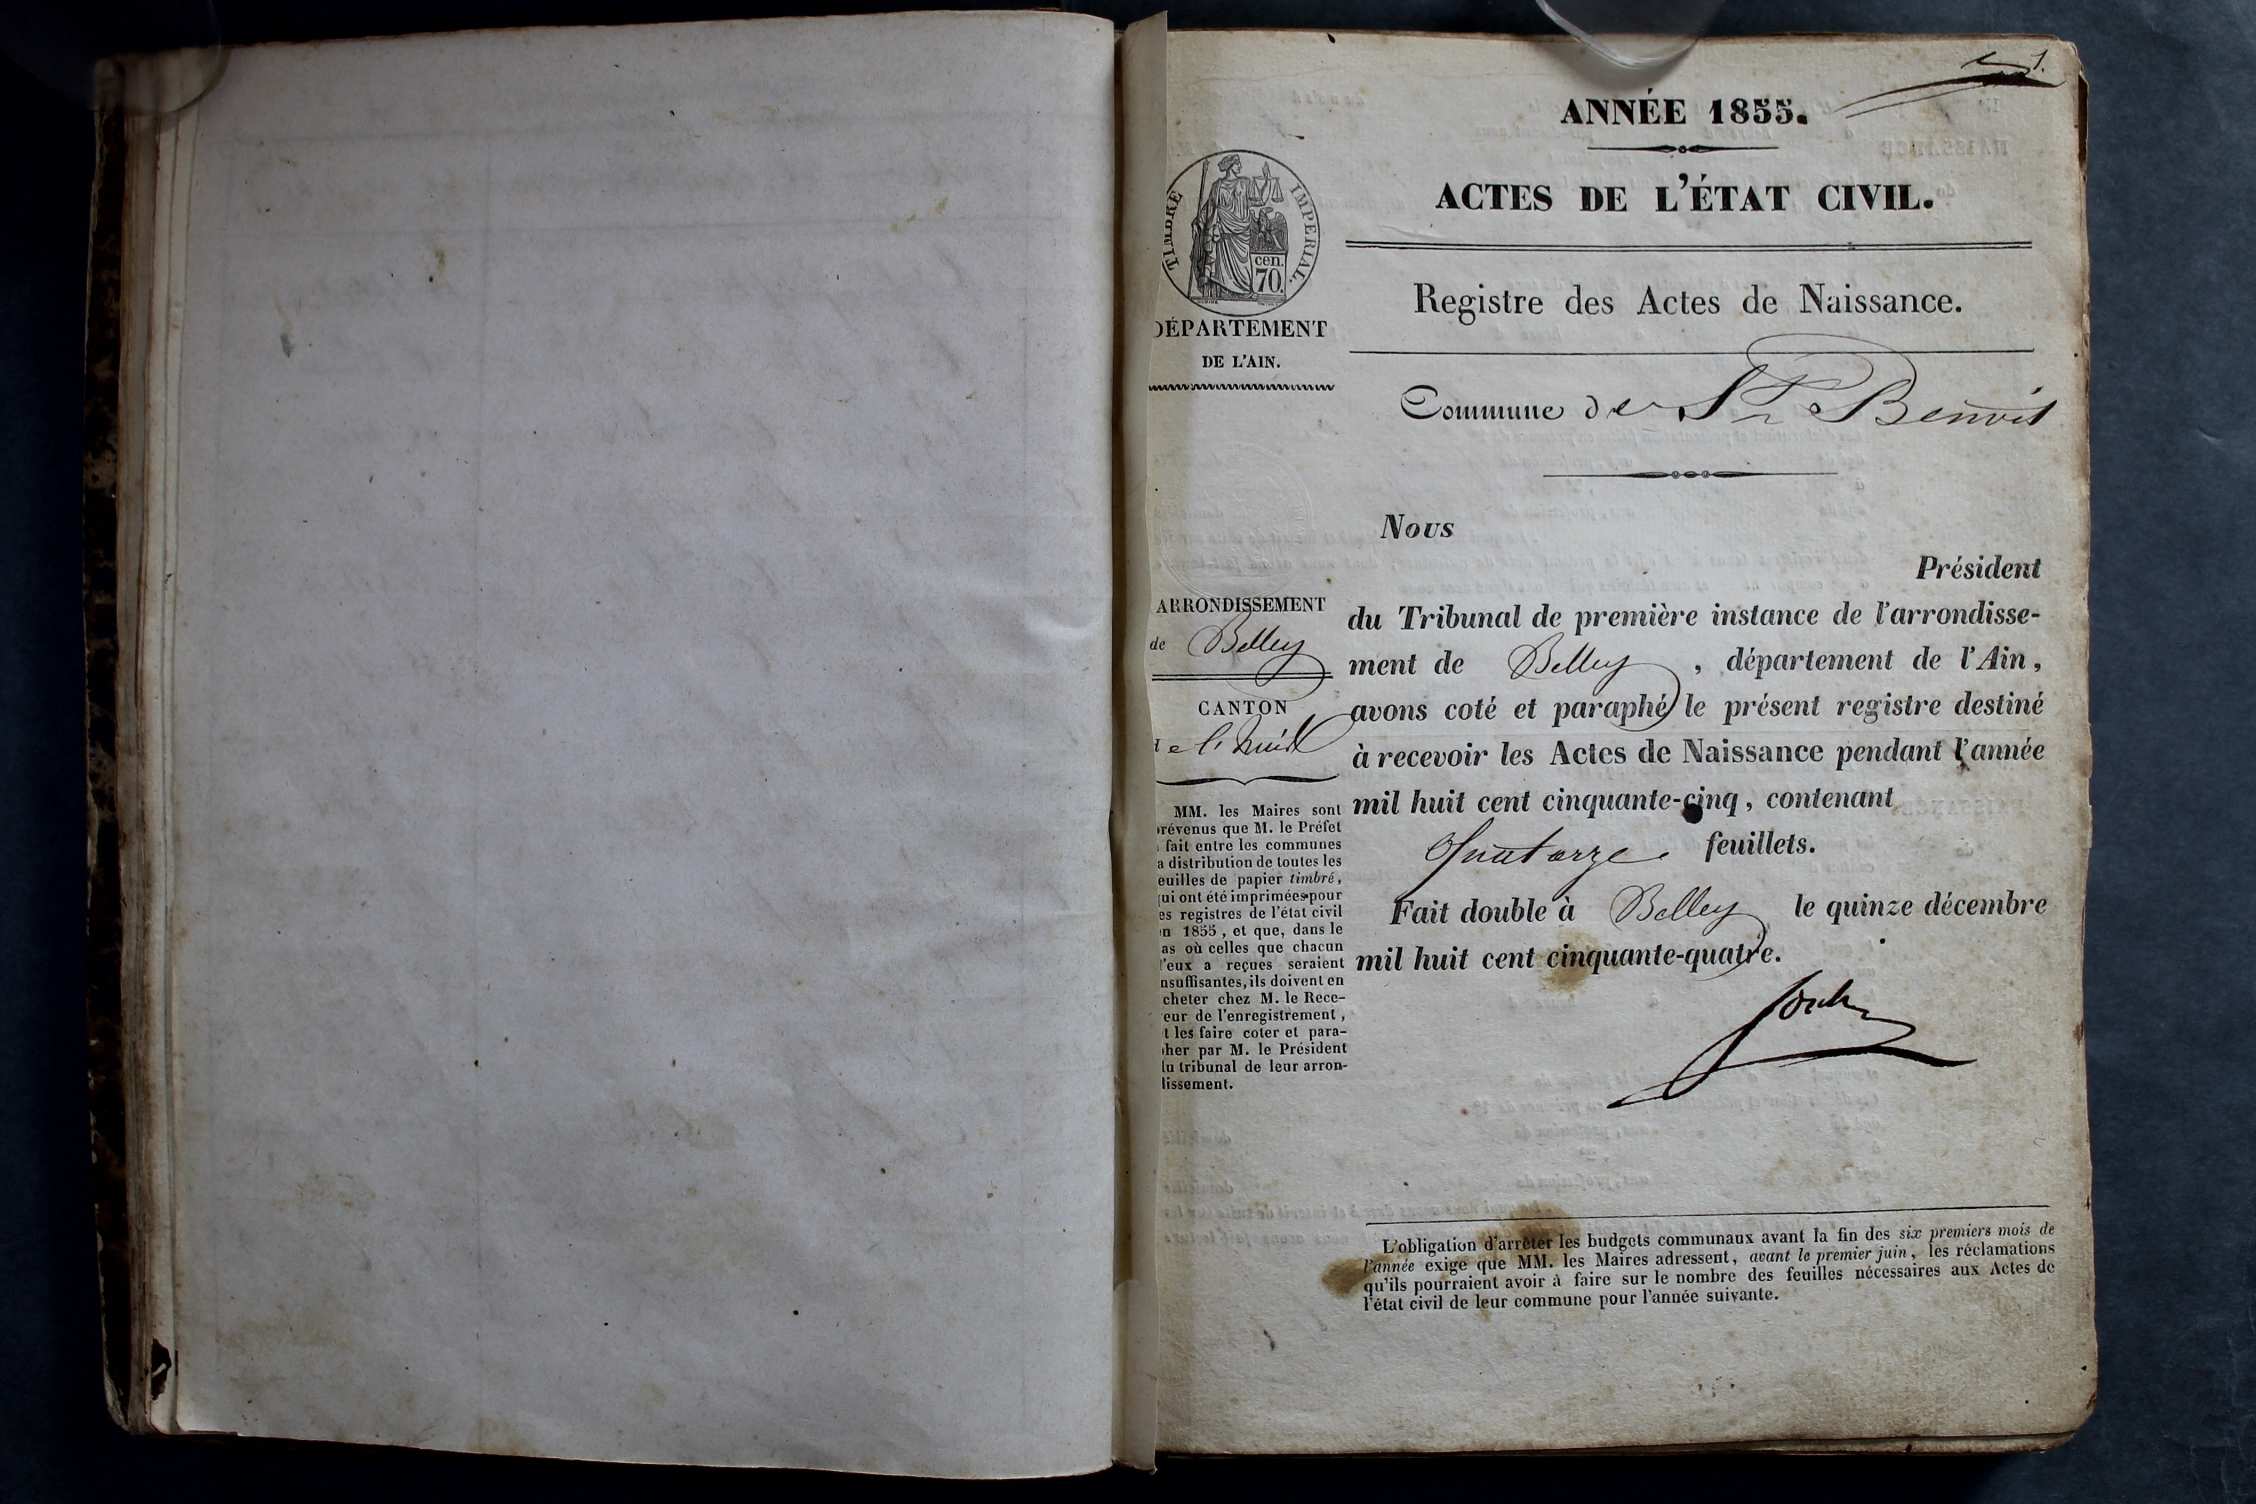 1.
ANNÉE 1855.
ACTES DE L'ÉTAT CIVIL.
TIMBRE IMPERIAL.
cen.
70.
DÉPARTEMENT
DE L'AIN.
Registre des Actes de Naissance.
Commune de St Benoit
ARRONDISSEMENT
de Belley
CANTON
de l'huis
MM. les Maires sont
prévenus que M. le Préfet
fait entre les communes
a distribution de toutes les
euilles de papier timbré,
qui ont été imprimées pour
es registres de l'état civil
en 1855, et que, dans le
as où celles que chacun
d'eux a reçues seraient
nsuffisantes, ils doivent en
cheter chez M. le Rece-
eur de l'enregistrement,
t les faire coter et para-
pher par M. le Président
du tribunal de leur arron-
dissement.
Nous
Président
du Tribunal de première instance de l'arrondisse-
ment de Belley, département de l'Ain,
avons coté et paraphé le présent registre destiné
à recevoir les Actes de Naissance pendant l'année
mil huit cent cinquante-cinq, contenant
Quatorze feuillets.
Fait double à Belley le quinze décembre
mil huit cent cinquante-quatre.
L'obligation d'arrêter les budgets communaux avant la fin des six premiers mois de
l'année exige que MM. les Maires adressent, avant le premier juin, les réclamations
qu'ils pourraient avoir à faire sur le nombre des feuilles nécessaires aux Actes de
l'état civil de leur commune pour l'année suivante.